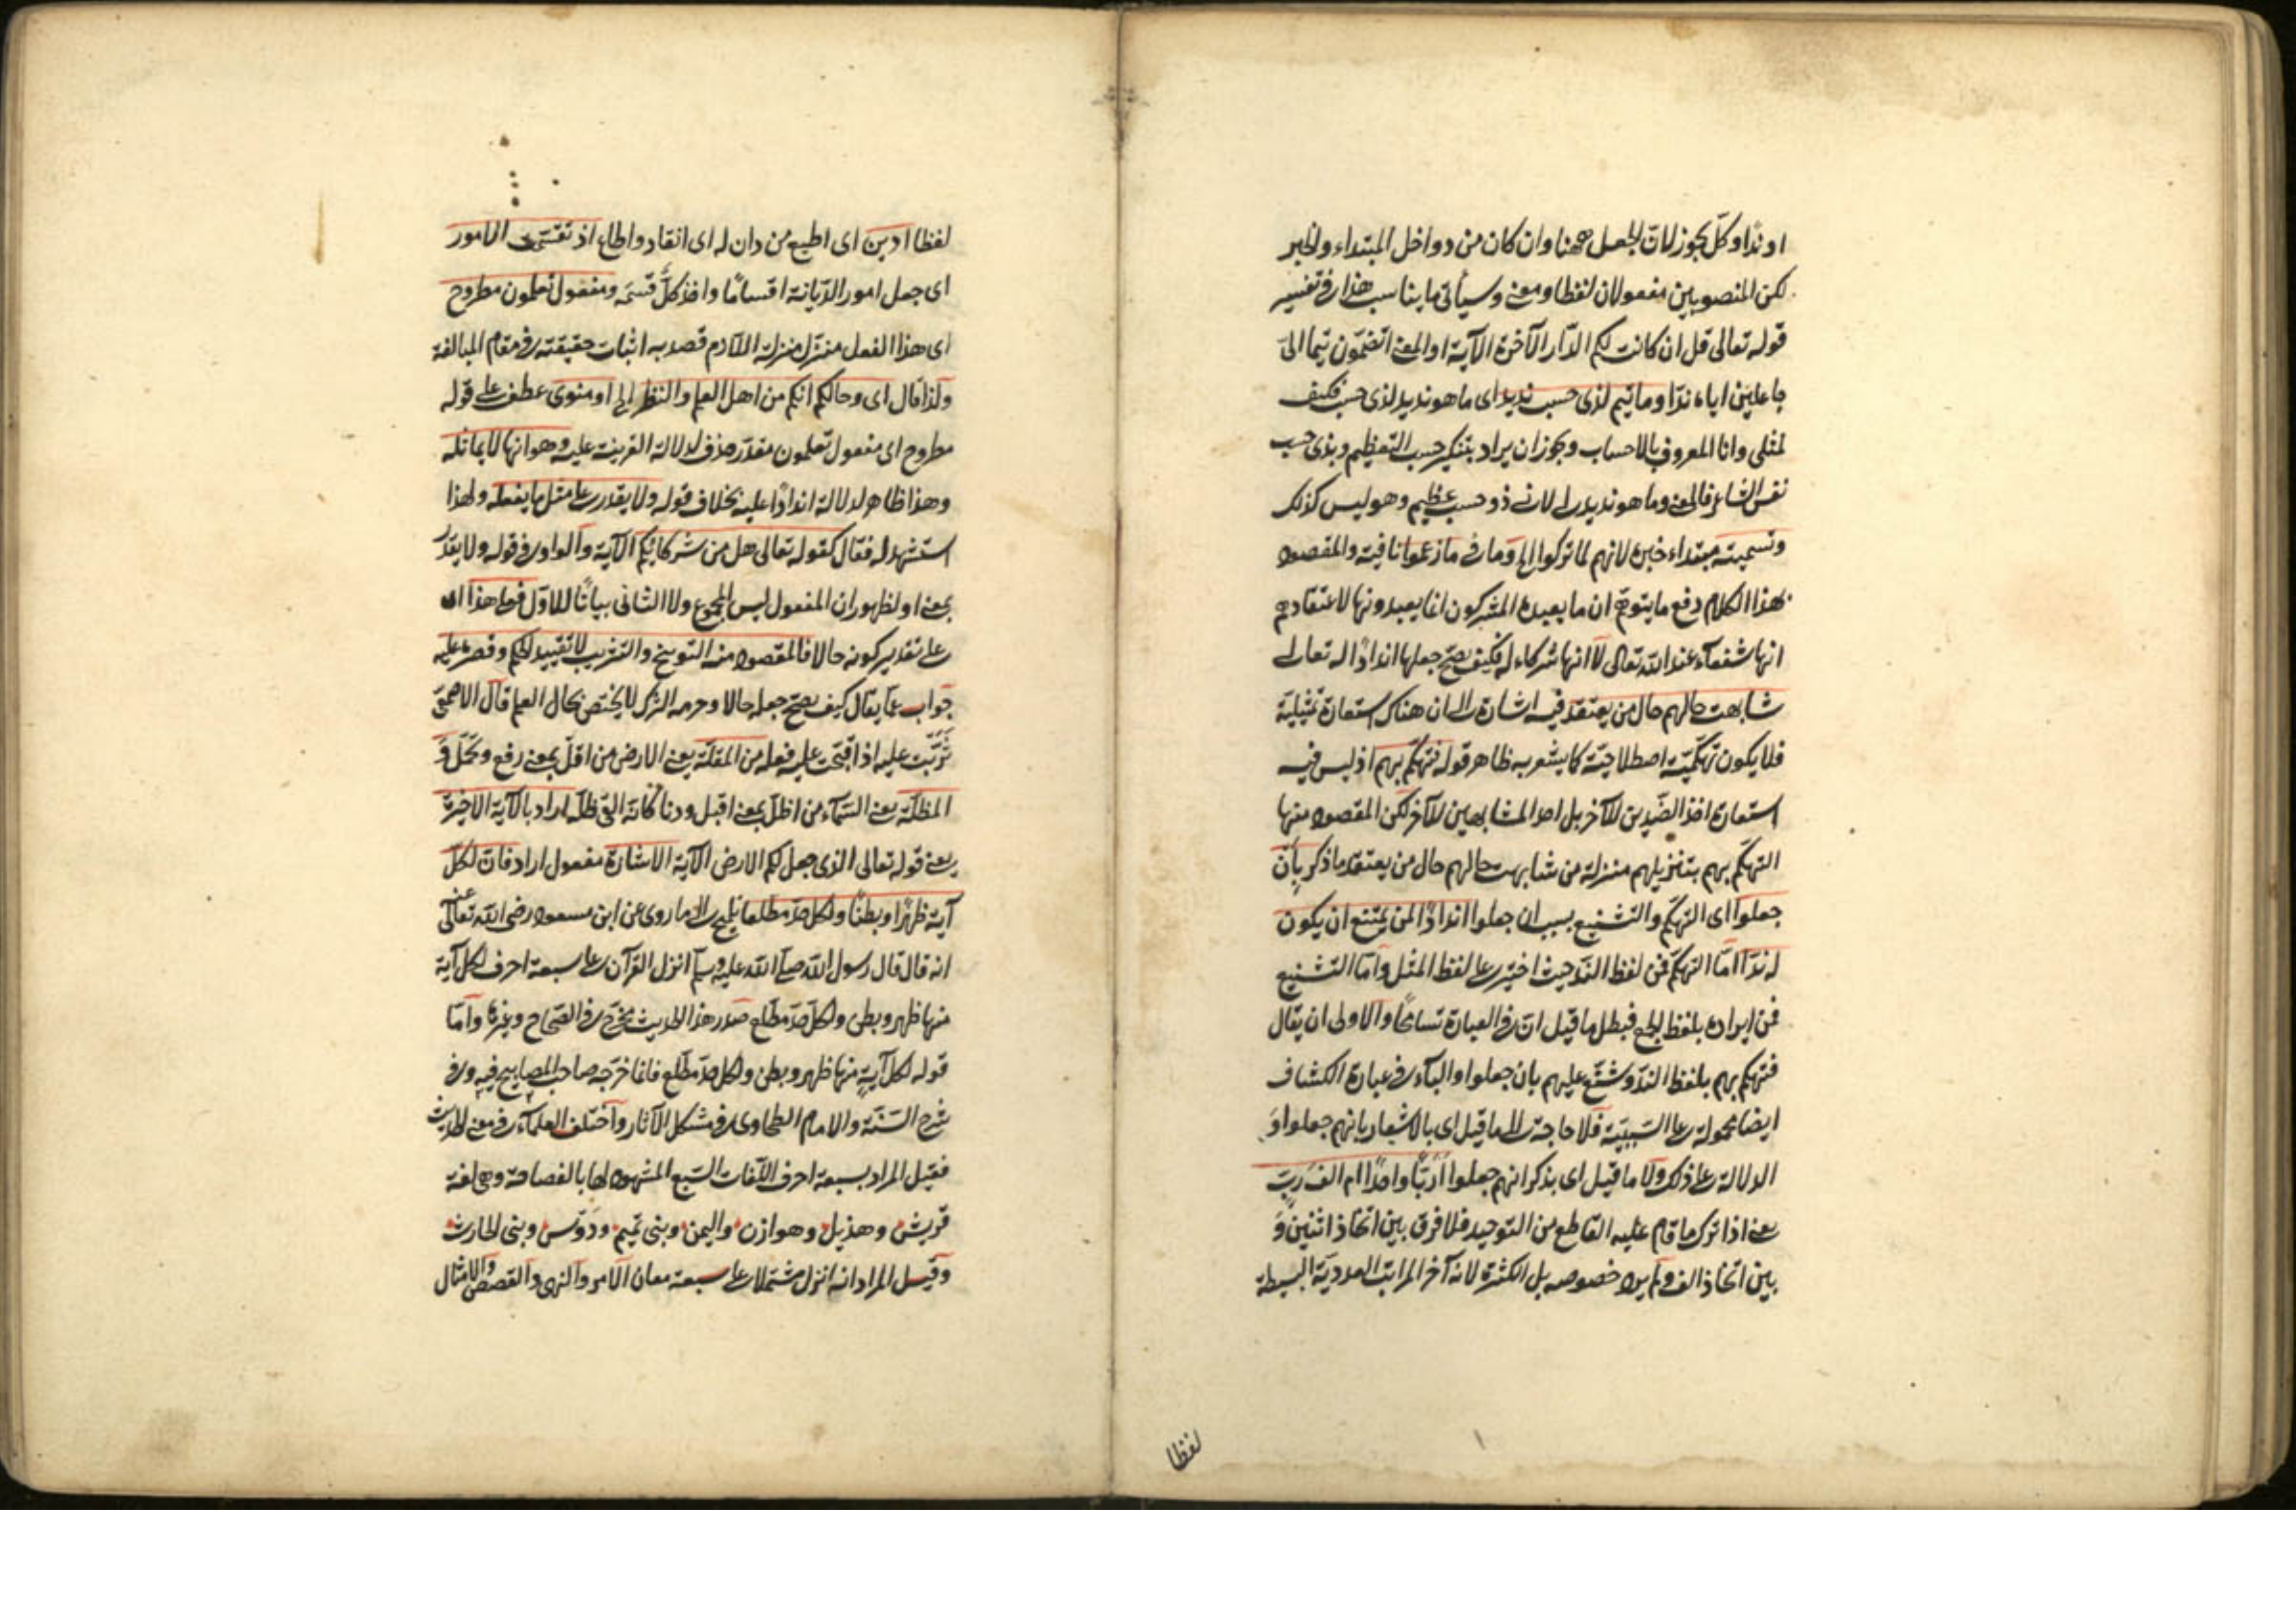 او ندّا وكلّ يجوز لانّ الجعل ههنا وان كان من دواخل المبتداء والخبر
لكن المنصوبين مفعولان لفظا ومعنى وسيأتى ما يناسب هذا فى تفسير
قوله تعالى قل ان كانت لكم الدّار الآخرة الآية او المعنى اتضمّون تيما الىّ
جاعلين اياه ندّا وما تيم لذى حسب نديد اى ما هو نديد لذى حسب فكيف
لمثلى وانا المعروف بالاحساب ويجوز ان يراد بتنكير حسب التعظيم وبذى حسب
نفس الشاعر فالمعنى وما هو نديد لى لانى ذو حسب عظيم وهو ليس كذلك
وتسميته مبتداء خبره لانهم لما تركوا الخ وما فى ما زعموا نافية والمقصود
بهذا الكلام دفع ما يتوهّم ان ما يعبده المشركون انما يعبدونها لاعتقادهم
انها شفعآء عند الله تعالى لا انها شركاء له فكيف يصحّ جعلها اندادًا له تعالى
شابهت حالهم حال من يعتقد فيه اشارة الى ان هناك استعارة تمثيلية
فلا يكون تهكّميّة اصطلاحيّة كما يشعر به ظاهر قوله فتهكّم بهم اذ ليس فيه
استعارة احد الضّدين للآخر بل احد المشابهين للآخر لكن المقصود منها
التهكّم بهم بتنزيلهم منزلة من شابهت حالهم حال من يعتقد ما ذكر بأنّ
جعلوا اى التهكّم والتشنيع بسبب ان جعلوا اندادًا لمن يمتنع ان يكون
له ندّ امّا التهكّم فمن لفظ الندّ حيث اختير على لفظ المثل وامّا التشنيع
فمن ايراده بلفظ الجمع فبطل ما قيل انّ فى العبارة تسامحًا والاولى ان يقال
فتهكم بهم بلفظ الندّ وشنّع عليهم بان جعلوا والبآء فى عبارة الكشاف
ايضا محمولة على السّببيّة فلا حاجة الى ما قيل اى بالاشعار بانهم جعلوا و
الدلالة على ذلك ولا ما قيل اى بذكر انهم جعلوا أربّا واحدًا ام الف ربّ
يعنى اذا ترك ما قام عليه القاطع من التوحيد فلا فرق بين اتخاذ اثنين و
بين اتخاذ الف ولم يرد خصوصه بل الكثرة لانه آخر المراتب العدديّة البسيطة
لفظا
لفظا ادين اى اطيع من دان له اى انقاد واطاع اذ تقسّمت الامور
اى جعل امور الدّيانة اقسامًا واخذ كلّ قسمه ومفعول تعلمون مطروح
اى هذا الفعل منزّل منزلة اللازم قصد به اثبات حقيقته فى مقام المبالغة
ولذا قال اى وحالكم انكم من اهل العلم والنظر الخ او منوى عطف على قوله
مطروح اى مفعول تعلمون مقدّر حذف لدلالة القرينة عليه وهو انها لا يماثله
وهذا ظاهر لدلالة اندادًا عليه بخلاف قوله ولا يقدر على مثل ما يفعله ولهذا
استشهد له فقال كقوله تعالى هل من شركائكم الآية والواو فى قوله ولا يقدر
بمعنى او لظهور ان المفعول ليس المجموع ولا الثانى بيانًا للاوّل فعلى هذا اى
على تقدير كونه حالا فالمقصود منه التوبيخ والتثريب لا تقييد الحكم وقصره عليه
جواب عمّا يقال كيف يصحّ جعله حالا وحرمة الشرك لا يختص بحال العلم قال الاصمعىّ
ثرّبت عليه اذا قبّحت عليه فعله من المقلّة يعنى الارض من اقلّ بمعنى رفع وتحمّل و
المظلّة يعنى السّمآء من اظلّ بمعنى اقبل ودنا كانه القى ظلّه اراد بالآية الاخيرة
يعنى قوله تعالى الذى جعل لكم الارض الآية الاشارة مفعول اراد فانّ لكلّ
آية ظهرًا وبطنًا ولكل حدّ مطلعا تلميح الى ما روى عن ابن مسعود رضى الله تعالى عنه
انه قال قال رسول الله صلّى الله عليه وسلّم انزل القرآن على سبعة احرف لكل آية
منها ظهر وبطن ولكل حدّ مطّلع صدر هذا الحديث مخرّج فى الصّحاح وغيرها وامّا
قوله لكل آية منها ظهر وبطن ولكل حدّ مطّلع فانما خرّجه صاحب المصابيح فيه وفى
شرح السّنّة والامام الطحاوى فى مشكل الآثار واختلف العلمآء فى معنى الحديث
فقيل المراد بسبعة احرف اللّغات السّبع المشهود لها بالفصاحة وهى لغة
قريش وهذيل وهوازن واليمن وبنى تميم ودوس وبنى الحارث
وقيل المراد انه انزل مشتملا على سبعة معان الامر والنهى والقصص والامثال